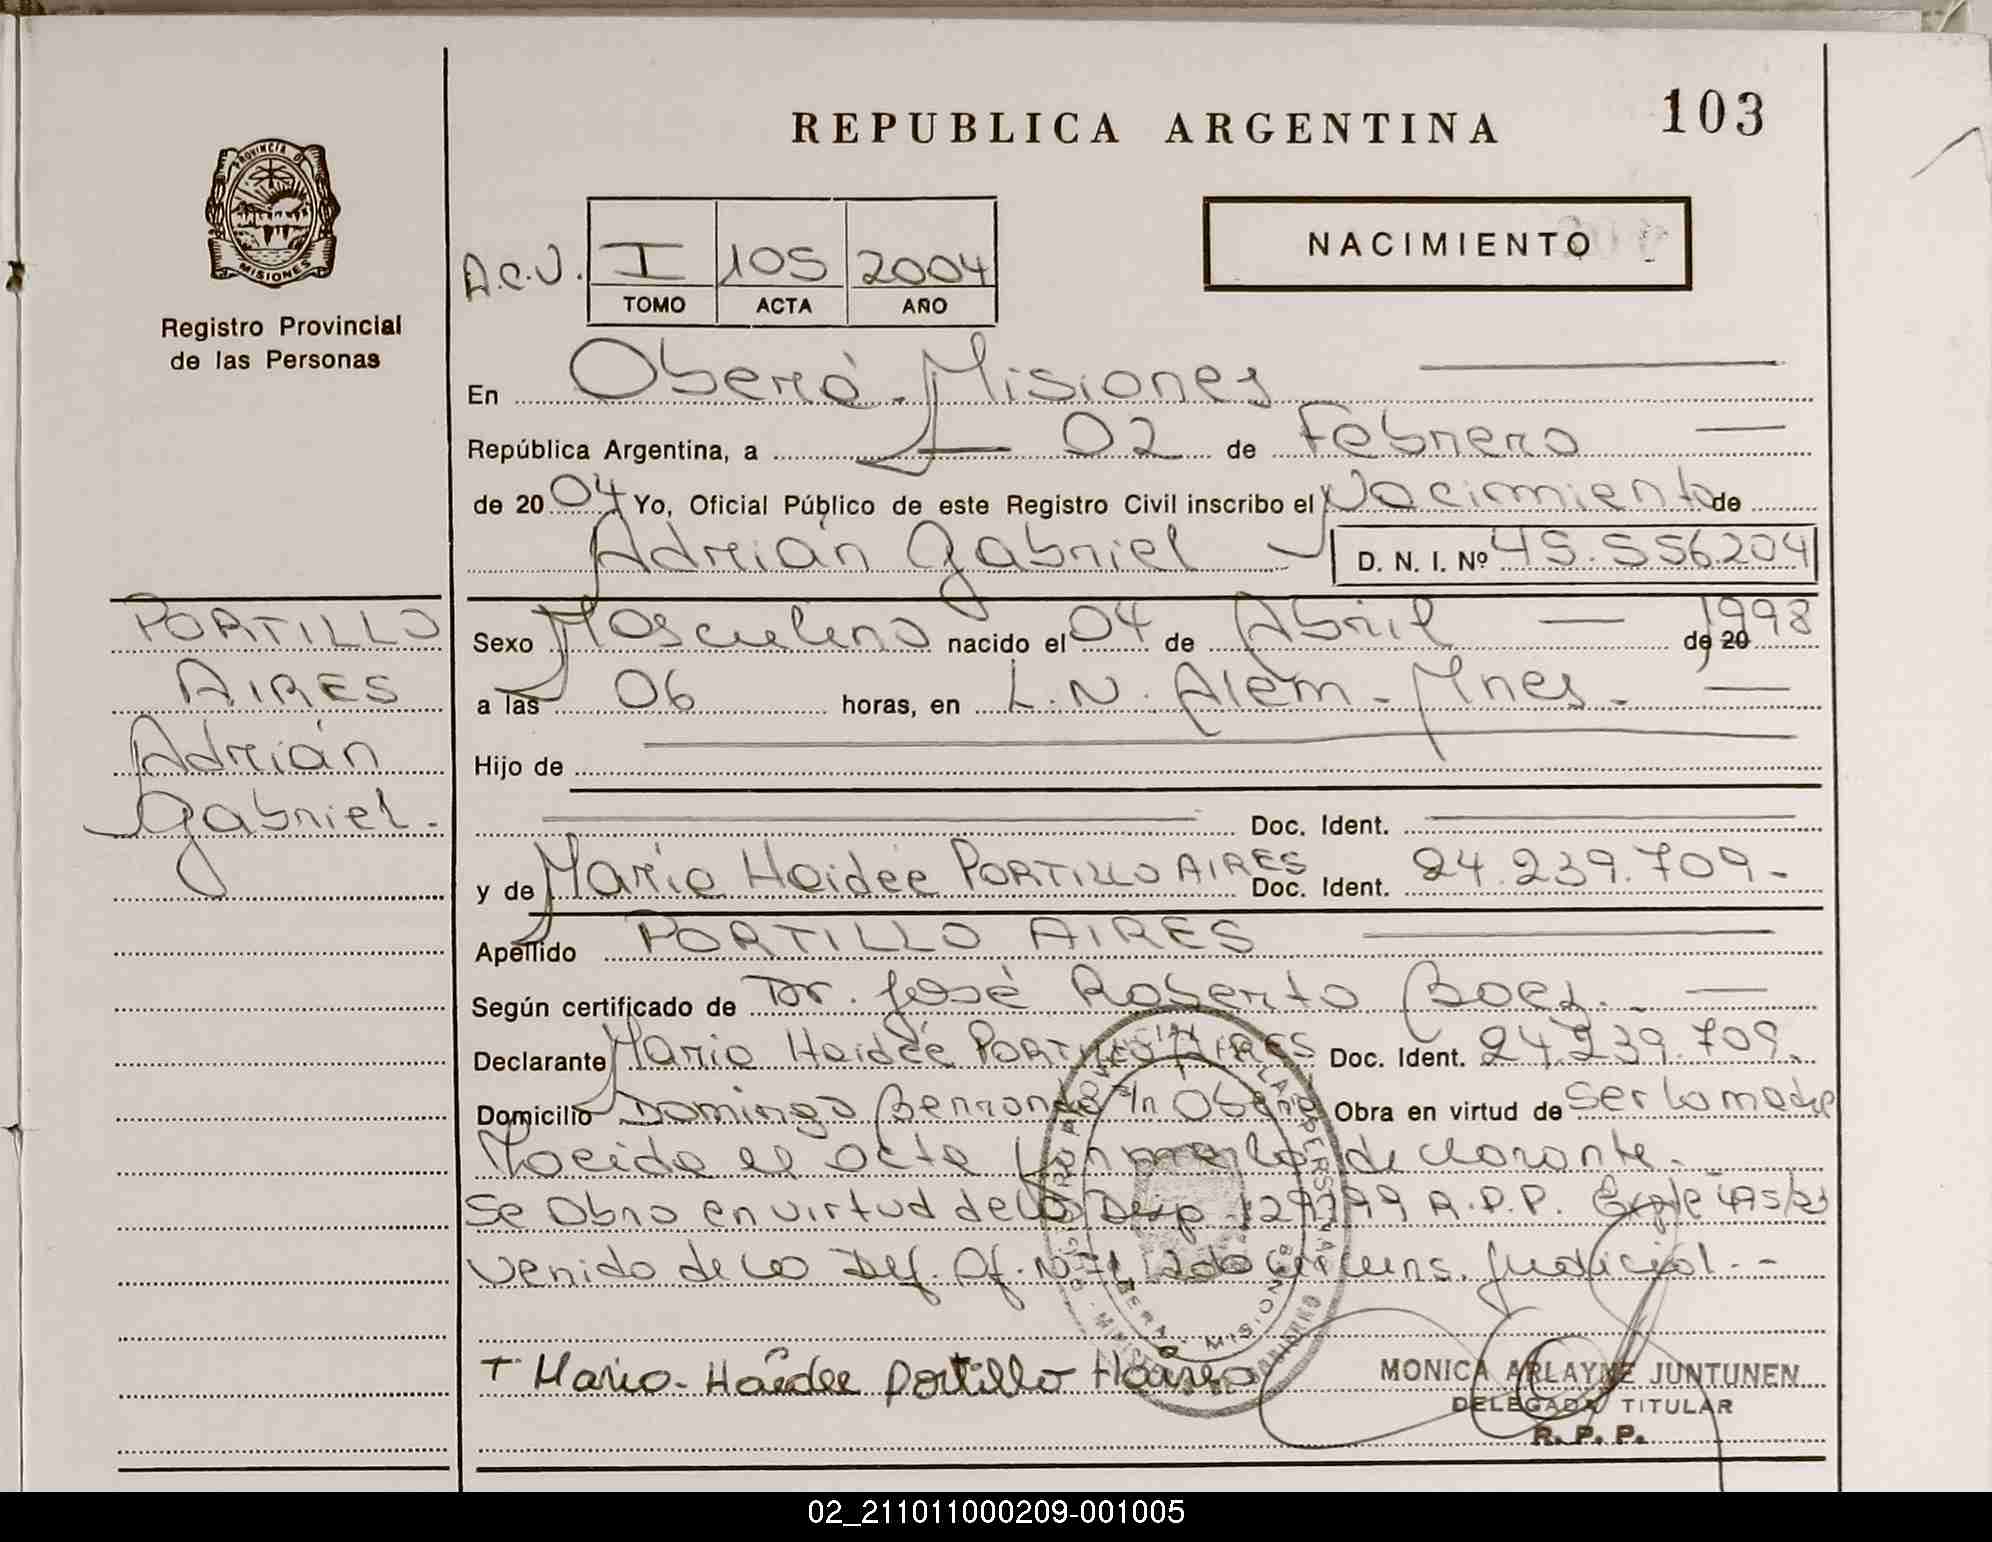 REPUBLICA ARGENTINA
103
PROVINCIA DE
MISIONES
Registro Provincial
de las Personas
A.C.V. I 105 2004
TOMO ACTA AÑO
NACIMIENTO
En Oberá - Misiones
República Argentina, a 02 de Febrero
de 2004 Yo, Oficial Público de este Registro Civil inscribo el Nacimiento de
Adrián Gabriel D. N. I. Nº 45.556.204
PORTILLO
AIRES
Adrián
Gabriel.-
Sexo Masculino nacido el 04 de Abril de 20 1998
a las 06 horas, en L.N. Alem - Mnes.-
Hijo de
Doc. Ident.
y de María Haidée PORTILLO AIRES Doc. Ident. 24.239.709.-
Apellido PORTILLO AIRES
Según certificado de Dr. José Roberto Baez.-
Declarante María Haidée PORTILLO AIRES Doc. Ident. 24.239.709.-
Domicilio Domingo S/n Oberá Obra en virtud de ser la madre
el acta declarante.-
Se Obra en virtud de la Disp 129/99 R.P.P.
venido de la Def. Of. Nº 1, 2da Circuns. Judicial.--
+ Mario- Haidee Portillo
MONICA ARLAYNE JUNTUNEN
DELEGADA TITULAR
R. P. P.
02_211011000209-001005